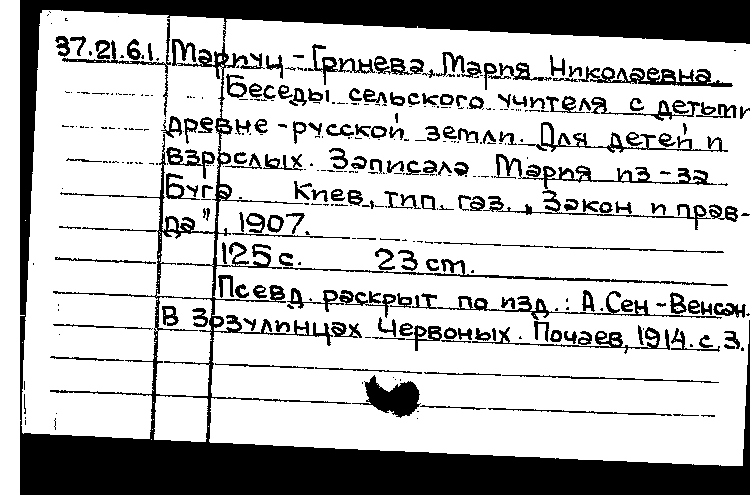 37.21.6.1. Марпуц-Гринева, Мария Николаевна.
Беседы сельского учителя с детьми
древне-русской земли. Для детей и
взрослых. Записала Мария из-за
Буга. Киев, тип. газ. „Закон и прав-
да", 1907.
125 с. 23 cm.
Псевд. раскрыт по изд.: А.Сен-Венсан.
В Зозулинцах Червоных. Почаев, 1914. с. 3.